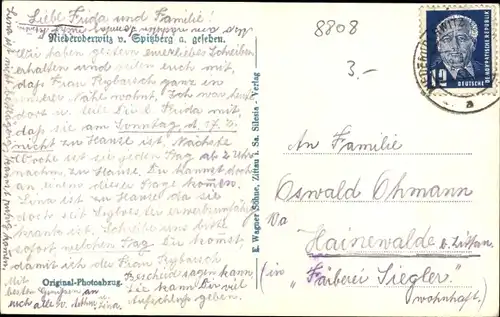 Liebe Frida und Familie!
Niederoderwitz v. Spitzberg a. gesehen.
Wir haben gestern euer liebes Schreiben
erhalten und teilen euch mit,
daß Frau Rybarsch ganz in
unserer Nähe wohnt. Ich war heut
dort u. ließ Frida mit,
daß sie am Sonntag d. 17. 5.
nicht zu Hause ist. Nächste
Woche ist sie jeden Tag ab 2 Uhr
nachm. zu Hause. Du kannst doch
an einem dieser Tage kommen.
Lina ist zu Hause da sie
doch seit
krank ist. Schreibe uns bitte
sofort welchen Tag Du kommst,
damit ich die Frau Rybarsch
Bescheid sagen kann.
Sie kann Dir viel
Aufschluß geben.
Mit
besten Grüßen an
euch alle v.
Lina.
Original-Photoabzug.
E. Wagner Söhne, Zittau i. Sa. Silesia - Verlag
8808
3.-
12
DEUTSCHE
DEMOKRATISCHE REPUBLIK
a
An Familie
Oswald Ohmann
Hainewalde b. Zittau
(in "Färberei Siegler"
wohnhaft.)